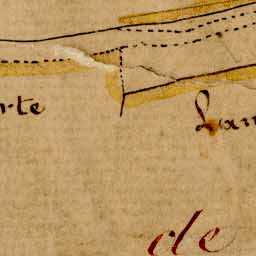 rte
Lan
de